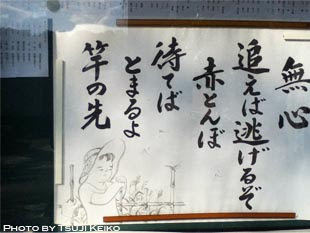 無心
追えば逃げるぞ
赤とんぼ
待てば
とまるよ
竿の先
PHOTO BY TSUJI KEIKO